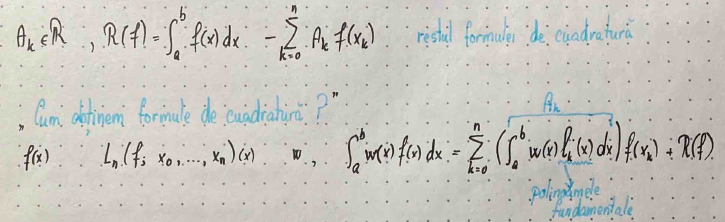 A_k ∈ ℝ , R(f) = ∫_a^b f(x) dx - ∑_{k=0}^n A_k f(x_k) restul formulei de cuadratură
„ Cum obținem formule de cuadratură ? ”
A_k
f(x) L_n(f; x_0, ..., x_n)(x) w , ∫_a^b w(x) f(x) dx = ∑_{k=0}^n (∫_a^b w(x) l_k(x) dx) f(x_k) + R(f)
polinoamele
fundamentale